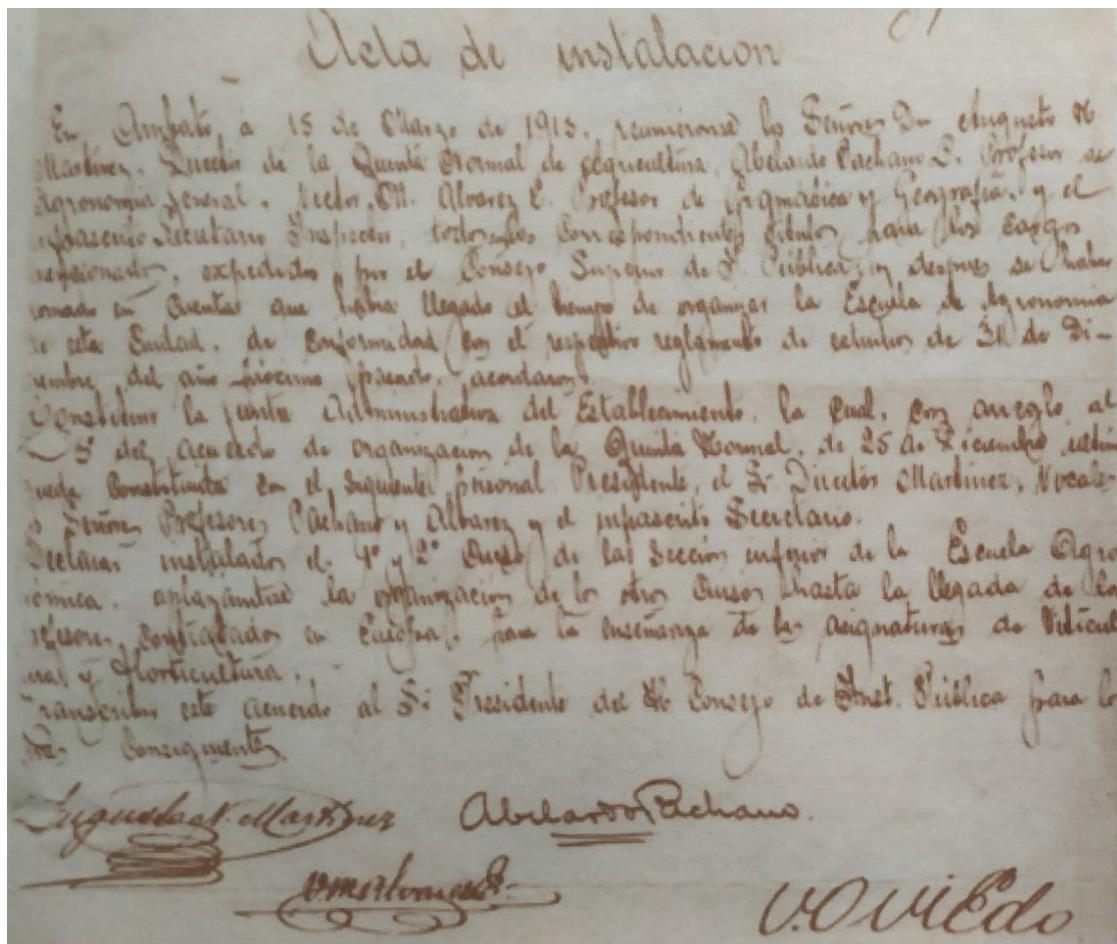 Acta de instalacion
En Ambato, á 15 de Marzo de 1913, reunieronse los Señores Dn Augusto N
Martínez, Director de la Quinta Normal de Agricultura, Abelardo Pachano L. Profesor de
Agronomia General, Victor M. Alvarez E. Profesor de Gramática y Geografía, y el
infrascrito Secretario Inspector, todos los correspondientes títulos para los cargos
mensionados, expedidos por el Consejo Superior de I. Pública, y despues de haber
tomado en cuenta que habia llegado el tiempo de organizar la Escuela de Agronomia
de esta Ciudad, de conformidad con el respectivo reglamento de estudios de 31 de Di-
ciembre del año próximo pasado, acordaron:
Constituir la Junta Administrativa del Establecimiento, la cual, con arreglo al
5 del acuerdo de organizacion de la Quinta Normal, de 25 de Diciembre
queda constituida con el siguiente personal Presidente, el Sr Director Martinez, Vocales
Señores Profesores Pachano y Albarez y el infrascrito Secretario.
Declarar instalados el y 2º Curso de la Seccion inferior de la Escuela Agro
nómica, aplazandose la organizacion de los otros Cursos hasta la llegada de los
rofesores contratados en Europa, para la enseñanza de las asignaturas de Viticul
tura y Horticultura.
Transcribir este acuerdo al Sr Presidente del H Consejo de Inst. Pública para lo
fines Consiguientes.
Augusto N. Martinez Abelardo Pachano.
V M Alvarez E.
V. Oviedo